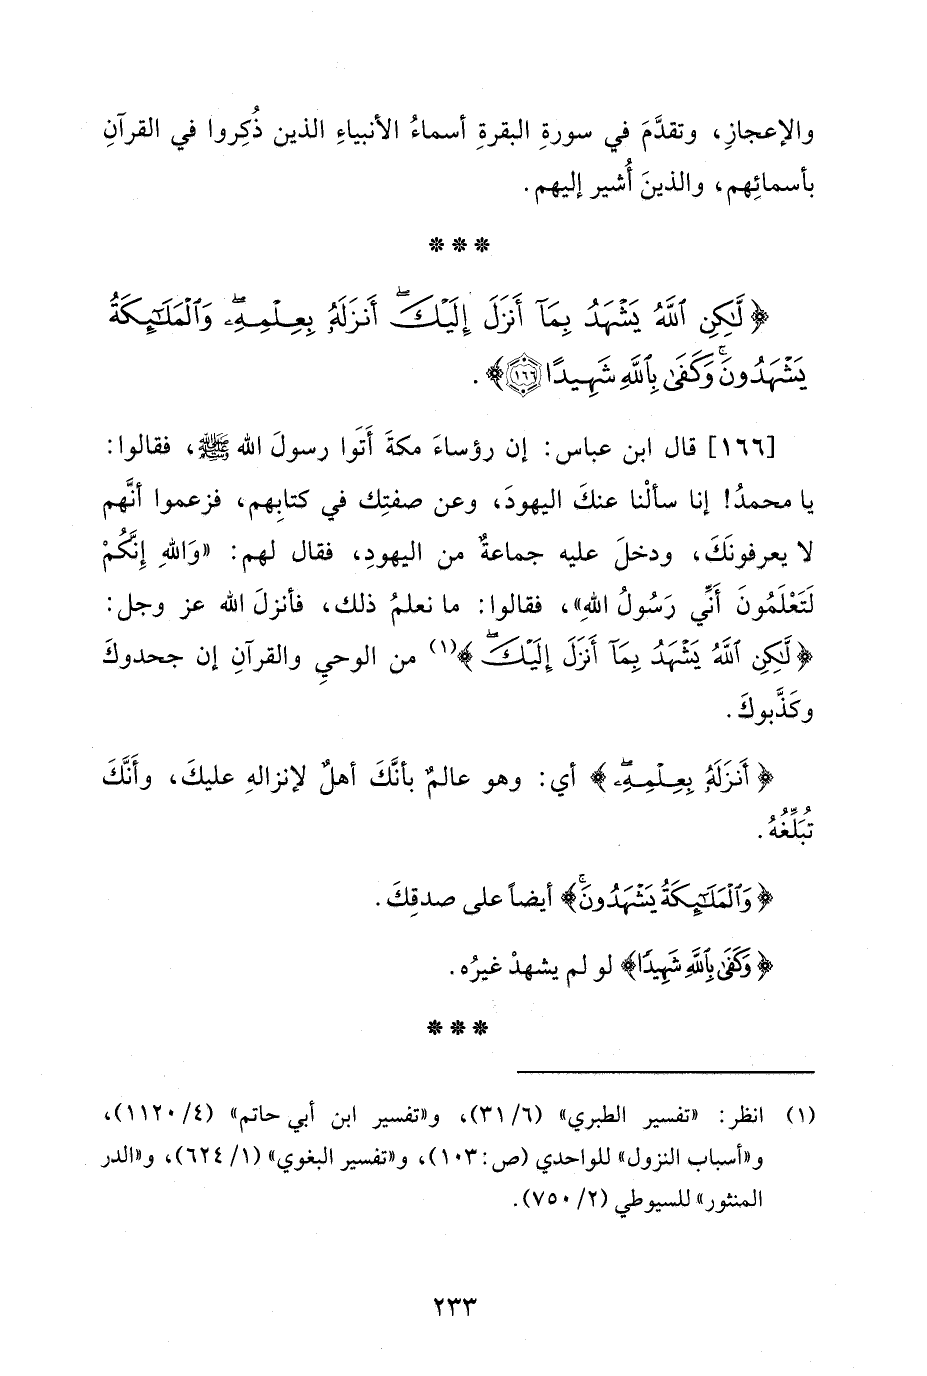 والإعجازِ، وتقدَّمَ في سورةِ البقرةِ أسماءُ الأنبياءِ الذين ذُكِروا في القرآنِ
بأسمائِهم، والذينَ أُشير إليهم.
* * *
﴿ لَّٰكِنِ ٱللَّهُ يَشْهَدُ بِمَآ أَنزَلَ إِلَيْكَۖ أَنزَلَهُۥ بِعِلْمِهِۦۖ وَٱلْمَلَٰٓئِكَةُ
يَشْهَدُونَۚ وَكَفَىٰ بِٱللَّهِ شَهِيدًا ١٦٦﴾ .
[١٦٦] قال ابن عباس: إن رؤساءَ مكةَ أَتَوا رسولَ الله ﷺ، فقالوا:
يا محمدُ! إنا سألْنا عنكَ اليهودَ، وعن صفتِك في كتابِهم، فزعموا أنَّهم
لا يعرفونَكَ، ودخلَ عليه جماعةٌ من اليهودِ، فقال لهم: «وَاللهِ إِنَّكُمْ
لَتَعْلَمُونَ أَنِّي رَسُولُ اللهِ»، فقالوا: ما نعلمُ ذلك، فأنزلَ الله عز وجل:
﴿ لَّٰكِنِ ٱللَّهُ يَشْهَدُ بِمَآ أَنزَلَ إِلَيْكَۖ ﴾(١) من الوحيِ والقرآنِ إن جحدوكَ
وكَذَّبوكَ.
﴿ أَنزَلَهُۥ بِعِلْمِهِۦۖ ﴾ أي: وهو عالمٌ بأنَّكَ أهلٌ لإنزالهِ عليكَ، وأَنَّكَ
تُبَلِّغُهُ.
﴿ وَٱلْمَلَٰٓئِكَةُ يَشْهَدُونَۚ﴾ أيضاً على صدقِكَ.
﴿ وَكَفَىٰ بِٱللَّهِ شَهِيدًا﴾ لو لم يشهدْ غيرُه.
* * *
(١) انظر: «تفسير الطبري» (٦/ ٣١)، و«تفسير ابن أبي حاتم» (٤/ ١١٢٠)،
و«أسباب النزول» للواحدي (ص: ١٠٣)، و«تفسير البغوي» (١/ ٦٢٤)، و«الدر
المنثور» للسيوطي (٢/ ٧٥٠).
٢٣٣